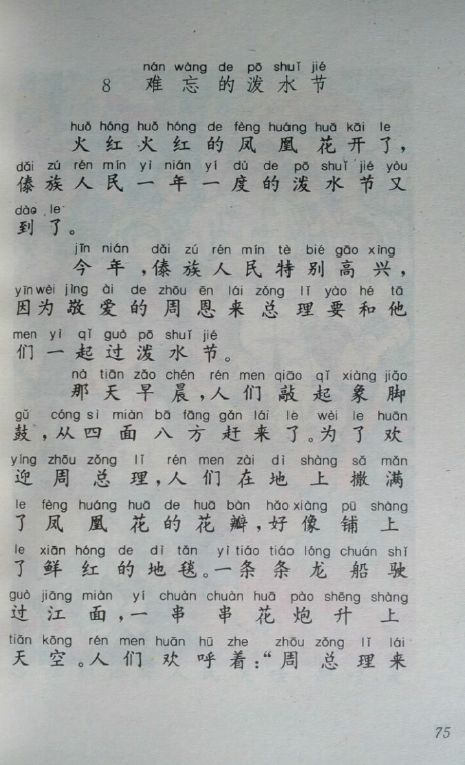 nán wàng de pō shuǐ jié
8 难忘的泼水节
huǒ hóng huǒ hóng de fèng huáng huā kāi le
火红火红的凤凰花开了，
dǎi zú rén mín yì nián yí dù de pō shuǐ jié yòu
傣族人民一年一度的泼水节又
dào le
到了。
jīn nián dǎi zú rén mín tè bié gāo xìng
今年，傣族人民特别高兴，
yīn wèi jìng ài de zhōu ēn lái zǒng lǐ yào hé tā
因为敬爱的周恩来总理要和他
men yì qǐ guò pō shuǐ jié
们一起过泼水节。
nà tiān zǎo chén rén men qiāo qǐ xiàng jiǎo
那天早晨，人们敲起象脚
gǔ cóng sì miàn bā fāng gǎn lái le wèi le huān
鼓，从四面八方赶来了。为了欢
yíng zhōu zǒng lǐ rén men zài dì shàng sǎ mǎn
迎周总理，人们在地上撒满
le fèng huáng huā de huā bàn hǎo xiàng pū shàng
了凤凰花的花瓣，好像铺上
le xiān hóng de dì tǎn yì tiáo tiáo lóng chuán shǐ
了鲜红的地毯。一条条龙船驶
guò jiāng miàn yí chuàn chuàn huā pào shēng shàng
过江面，一串串花炮升上
tiān kōng rén men huān hū zhe zhōu zǒng lǐ lái
天空。人们欢呼着：“周总理来
75